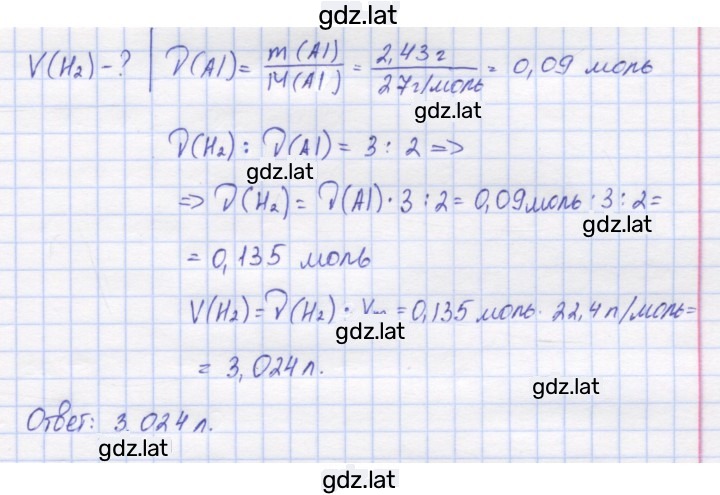 gdz.lat
V(H₂) - ? | ν(Al) = m(Al)/M(Al) = 2,43 г/27 г/моль = 0,09 моль
gdz.lat
ν(H₂) : ν(Al) = 3 : 2 =>
gdz.lat
=> ν(H₂) = ν(Al) · 3 : 2 = 0,09 моль · 3 : 2 =
gdz.lat
= 0,135 моль
V(H₂) = ν(H₂) · Vₘ = 0,135 моль · 22,4 л/моль =
gdz.lat
= 3,024 л.
gdz.lat
Ответ: 3,024 л.
gdz.lat
gdz.lat